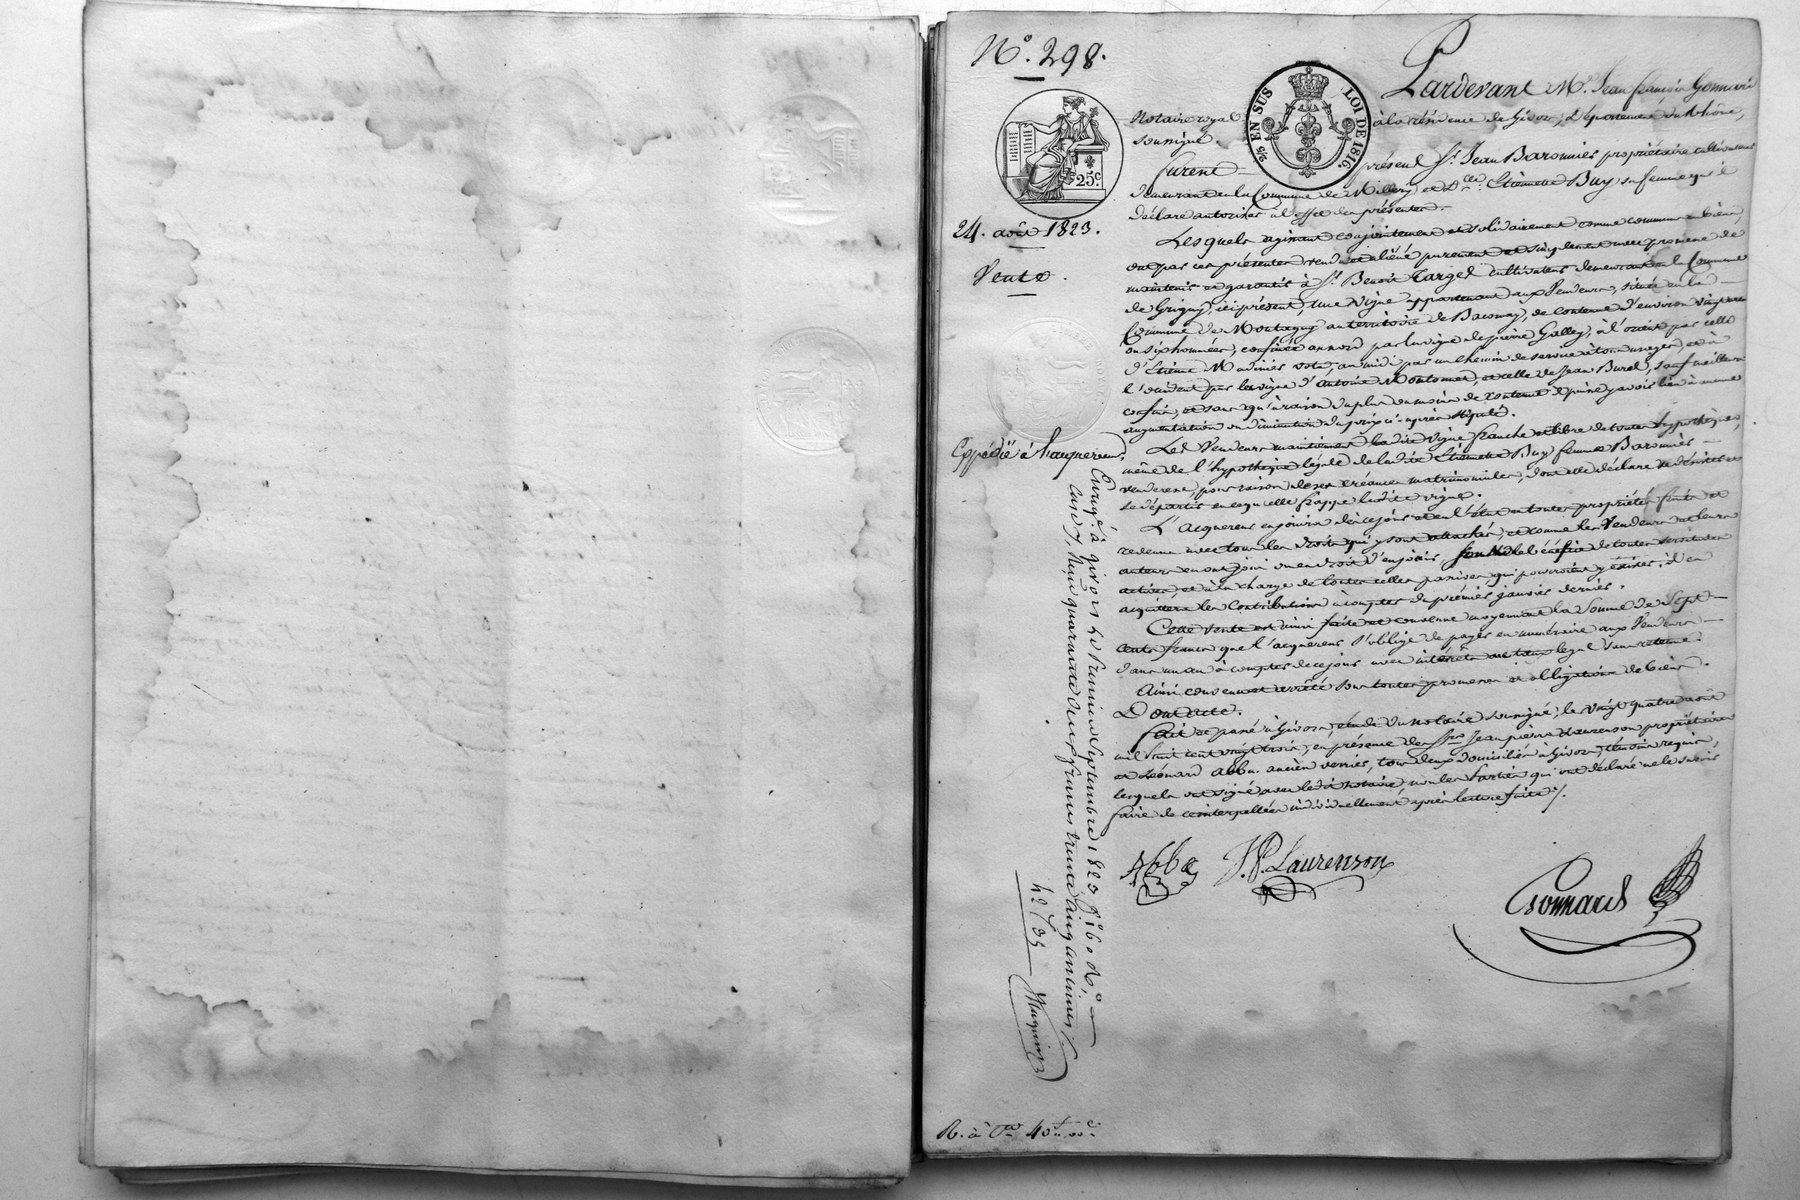 N.° 298.
25 EN SUS
LOI DE 1816.
25c
24. août 1823.
Vente.
Expédié à l'acquereur.
Pardevant Me. Jean françois Gonnard
Notaire royal à la résidence de Givors, département du Rhône,
soussigné.
furent présent Sr. Jean Baronnier propriétaire cultivateur
demeurant en la Commune de Millery et Dlle. Etiennette Buy sa femme qu'il
déclare autoriser à l'effet des présentes.
Lesquels agissant conjointement et solidairement comme communs en biens,
ont par ces présentes vendu et aliéné purement et simplement avec promesse de
maintenir et garantir à Sr. Benoit Targe cultivateur demeurant en la Commune
de Grigny, ici présent, une vigne appartenant aux Vendeurs, située en la
Commune de Montagny au territoire de Bacony, de contenue d'environ
ou six hommées, confinée au nord par la vigne de pierre Galley, à l'orient par celle
d'Etienne au midi par un chemin de service à tous usages, et à
l'occident par la vigne d'antoine et celle de Jean Burel, sauf meilleurs
confins, et sans qu'à raison du plus ou moins de contenue il puisse y avoir lieu à aucune
augmentation ou diminution du prix ci-après stipulé.
Les Vendeurs maintiennent ladite vigne franche et libre de toutes hypothèques,
même de l'hypothèque légale de ladite Etiennette Buy femme Baronnier
venderesse, pour raison de ses créances matrimoniales, dont elle déclare se désister et
se départir en ce qu'elle frappe ladite vigne.
L'acquereur en jouira dès ce jour et en l'état en toutes propriétés fruits et
revenus avec tous les droits qui y sont attachés, et comme les Vendeurs et leurs
auteurs en ont joui ou eu droit d'en jouir, sous le bénéfice de toutes servitudes
actives, et à la charge de toutes celles passives, qui pourroient y exister; il en
acquittera les Contributions à compter du premier janvier dernier.
Cette vente est ainsi faite et convenue moyennant la Somme de Sept
cents francs que l'acquereur s'oblige de payer en numéraire aux Vendeurs
dans un an à compter de ce jour avec intérêts au taux légal sans retenue.
Ainsi convenu et arrêté sous toutes promesses et obligations de biens.
Dont acte.
fait et passé à Givors, étude du notaire soussigné, le vingt quatre août
mil huit cent vingt trois, en présence de Srs. Jean pierre Laurenson propriétaire
et Léonard Abbe. ancien verrier, tous deux domiciliés à Givors, témoins requis,
lesquels ont signé avec ledit notaire, non les parties qui ont déclaré ne le savoir
faire de ce interpellées individuellement, après lecture faite /.
Abbe
J. P. Laurenson
Gonnard
Enregé. à givors le premier septembre 1823 fo. 160 Ro.
Case 7, Reçu quarante deux francs trente cinq centimes
42 f 35
R. à